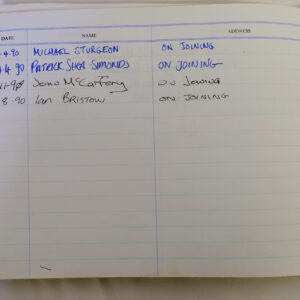 DATE NAME ADDRESS
4.90 MICHAEL STURGEON ON JOINING
4.90 PATRICK SHEA-SIMONDS ON JOINING
John McCafferry ON JOINING
8.90 Ian BRISTOW ON JOINING